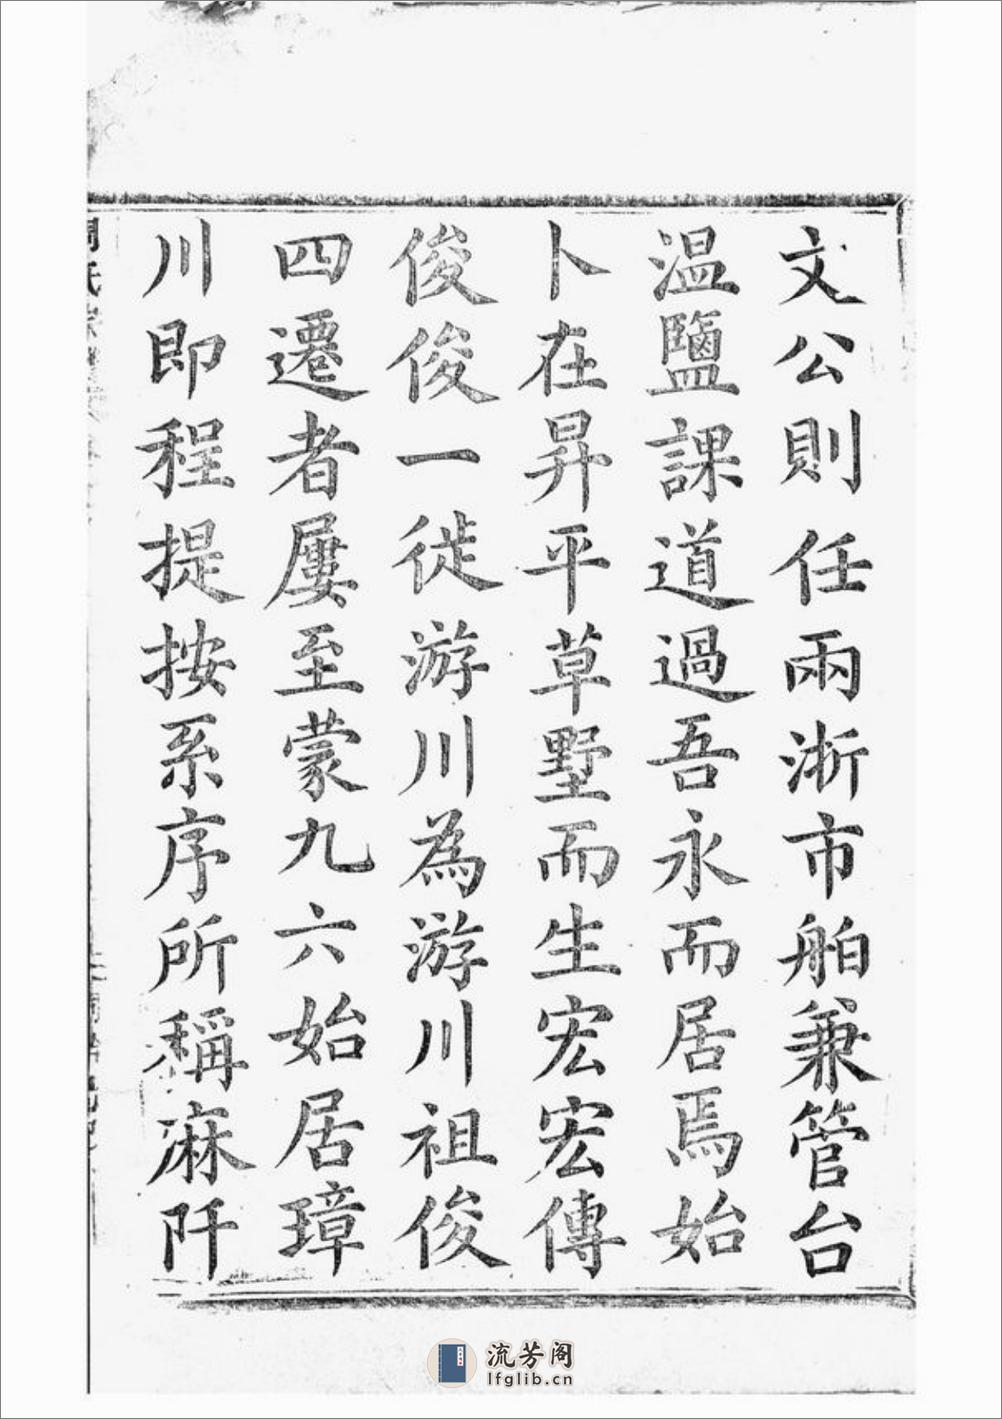 文公則任兩浙市舶兼管台
温鹽課道過吾永而居焉始
卜在昇平草墅而生宏宏傳
俊俊一徙游川為游川祖俊
四遷者屢至蒙九六始居璋
川即程提按系序所稱麻阡
流芳阁
lfglib.cn